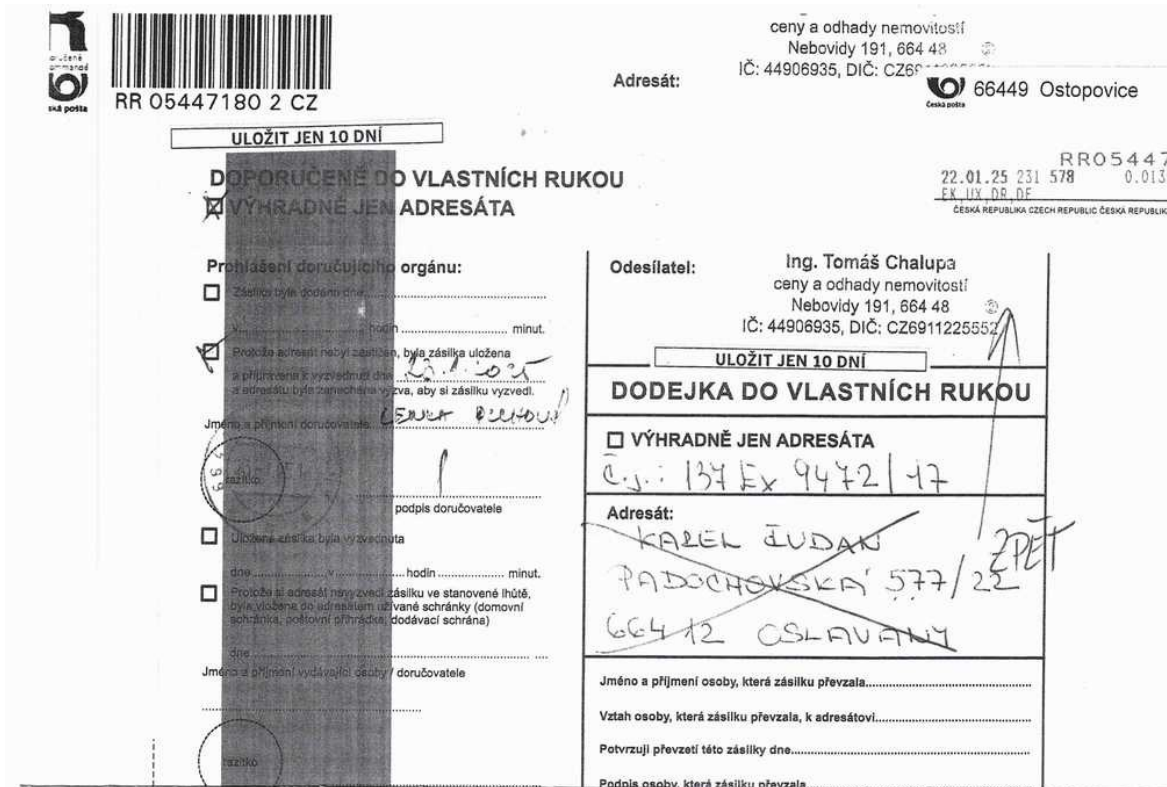 RR 05447180 2 CZ
Česká pošta
ULOŽIT JEN 10 DNÍ
DOPORUČENĚ DO VLASTNÍCH RUKOU
VÝHRADNĚ JEN ADRESÁTA
Adresát:
ceny a odhady nemovitostí
Nebovidy 191, 664 48
IČ: 44906935, DIČ: CZ69
Česká pošta
66449 Ostopovice
RR05447
22.01.25 231 578 0.013
EK,UX,DR,DE
ČESKÁ REPUBLIKA CZECH REPUBLIC ČESKÁ REPUBLIK
Prohlášení doručujícího orgánu:
Zásilka byla dodána dne
v hodin minut.
Protože adresát nebyl zastižen, byla zásilka uložena
a připravena k vyzvednutí dne 23.1.2025
a adresátu byla zanechána výzva, aby si zásilku vyzvedl.
Jméno a příjmení doručovatele LENKA
razítko
podpis doručovatele
Uložená zásilka byla vyzvednuta
dne v hodin minut.
Protože si adresát nevyzvedl zásilku ve stanovené lhůtě,
byla vložena do adresátem užívané schránky (domovní
schránka, poštovní přihrádka, dodávací schrána)
dne
Jméno a příjmení vydávající osoby / doručovatele
razítko
Odesílatel:
Ing. Tomáš Chalupa
ceny a odhady nemovitostí
Nebovidy 191, 664 48
IČ: 44906935, DIČ: CZ6911225552
ULOŽIT JEN 10 DNÍ
DODEJKA DO VLASTNÍCH RUKOU
VÝHRADNĚ JEN ADRESÁTA
Č.j.: 137 Ex 9472/17
Adresát:
KAREL ŽUDAN
ZPĚT
PADOCHOVSKÁ 577/22
664 12 OSLAVANY
Jméno a příjmení osoby, která zásilku převzala
Vztah osoby, která zásilku převzala, k adresátovi
Potvrzuji převzetí této zásilky dne
Podpis osoby, která zásilku převzala